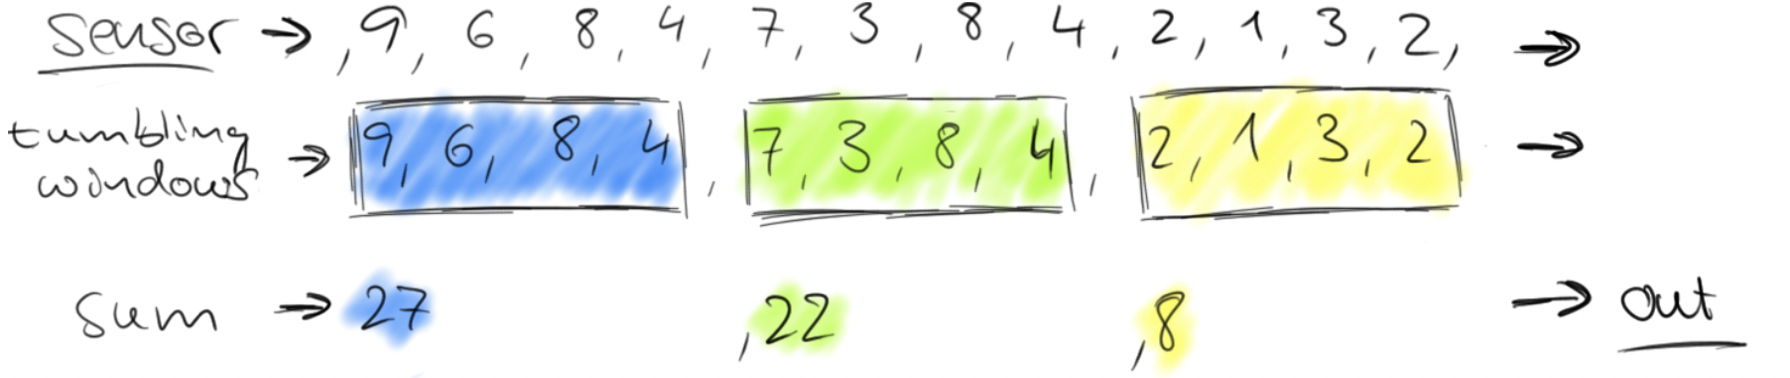 sensor → , 9, 6, 8, 4, 7, 3, 8, 4, 2, 1, 3, 2, →
tumbling windows → 9, 6, 8, 4 , 7, 3, 8, 4 , 2, 1, 3, 2 →
sum → 27 , 22 , 8 → out